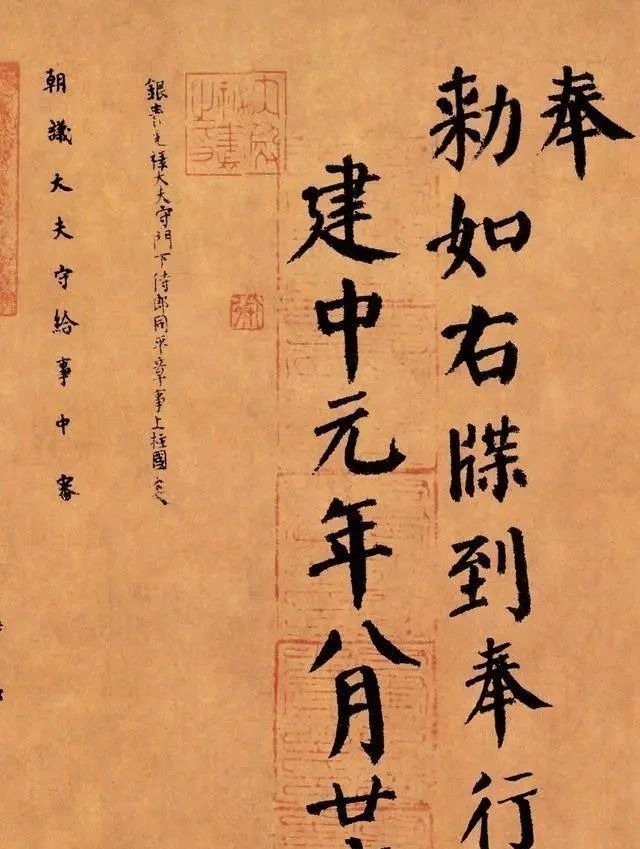 奉
勅如右牒到奉行
建中元年八月廿
銀青光祿大夫守門下侍郎同平章事上柱國
朝議大夫守給事中審